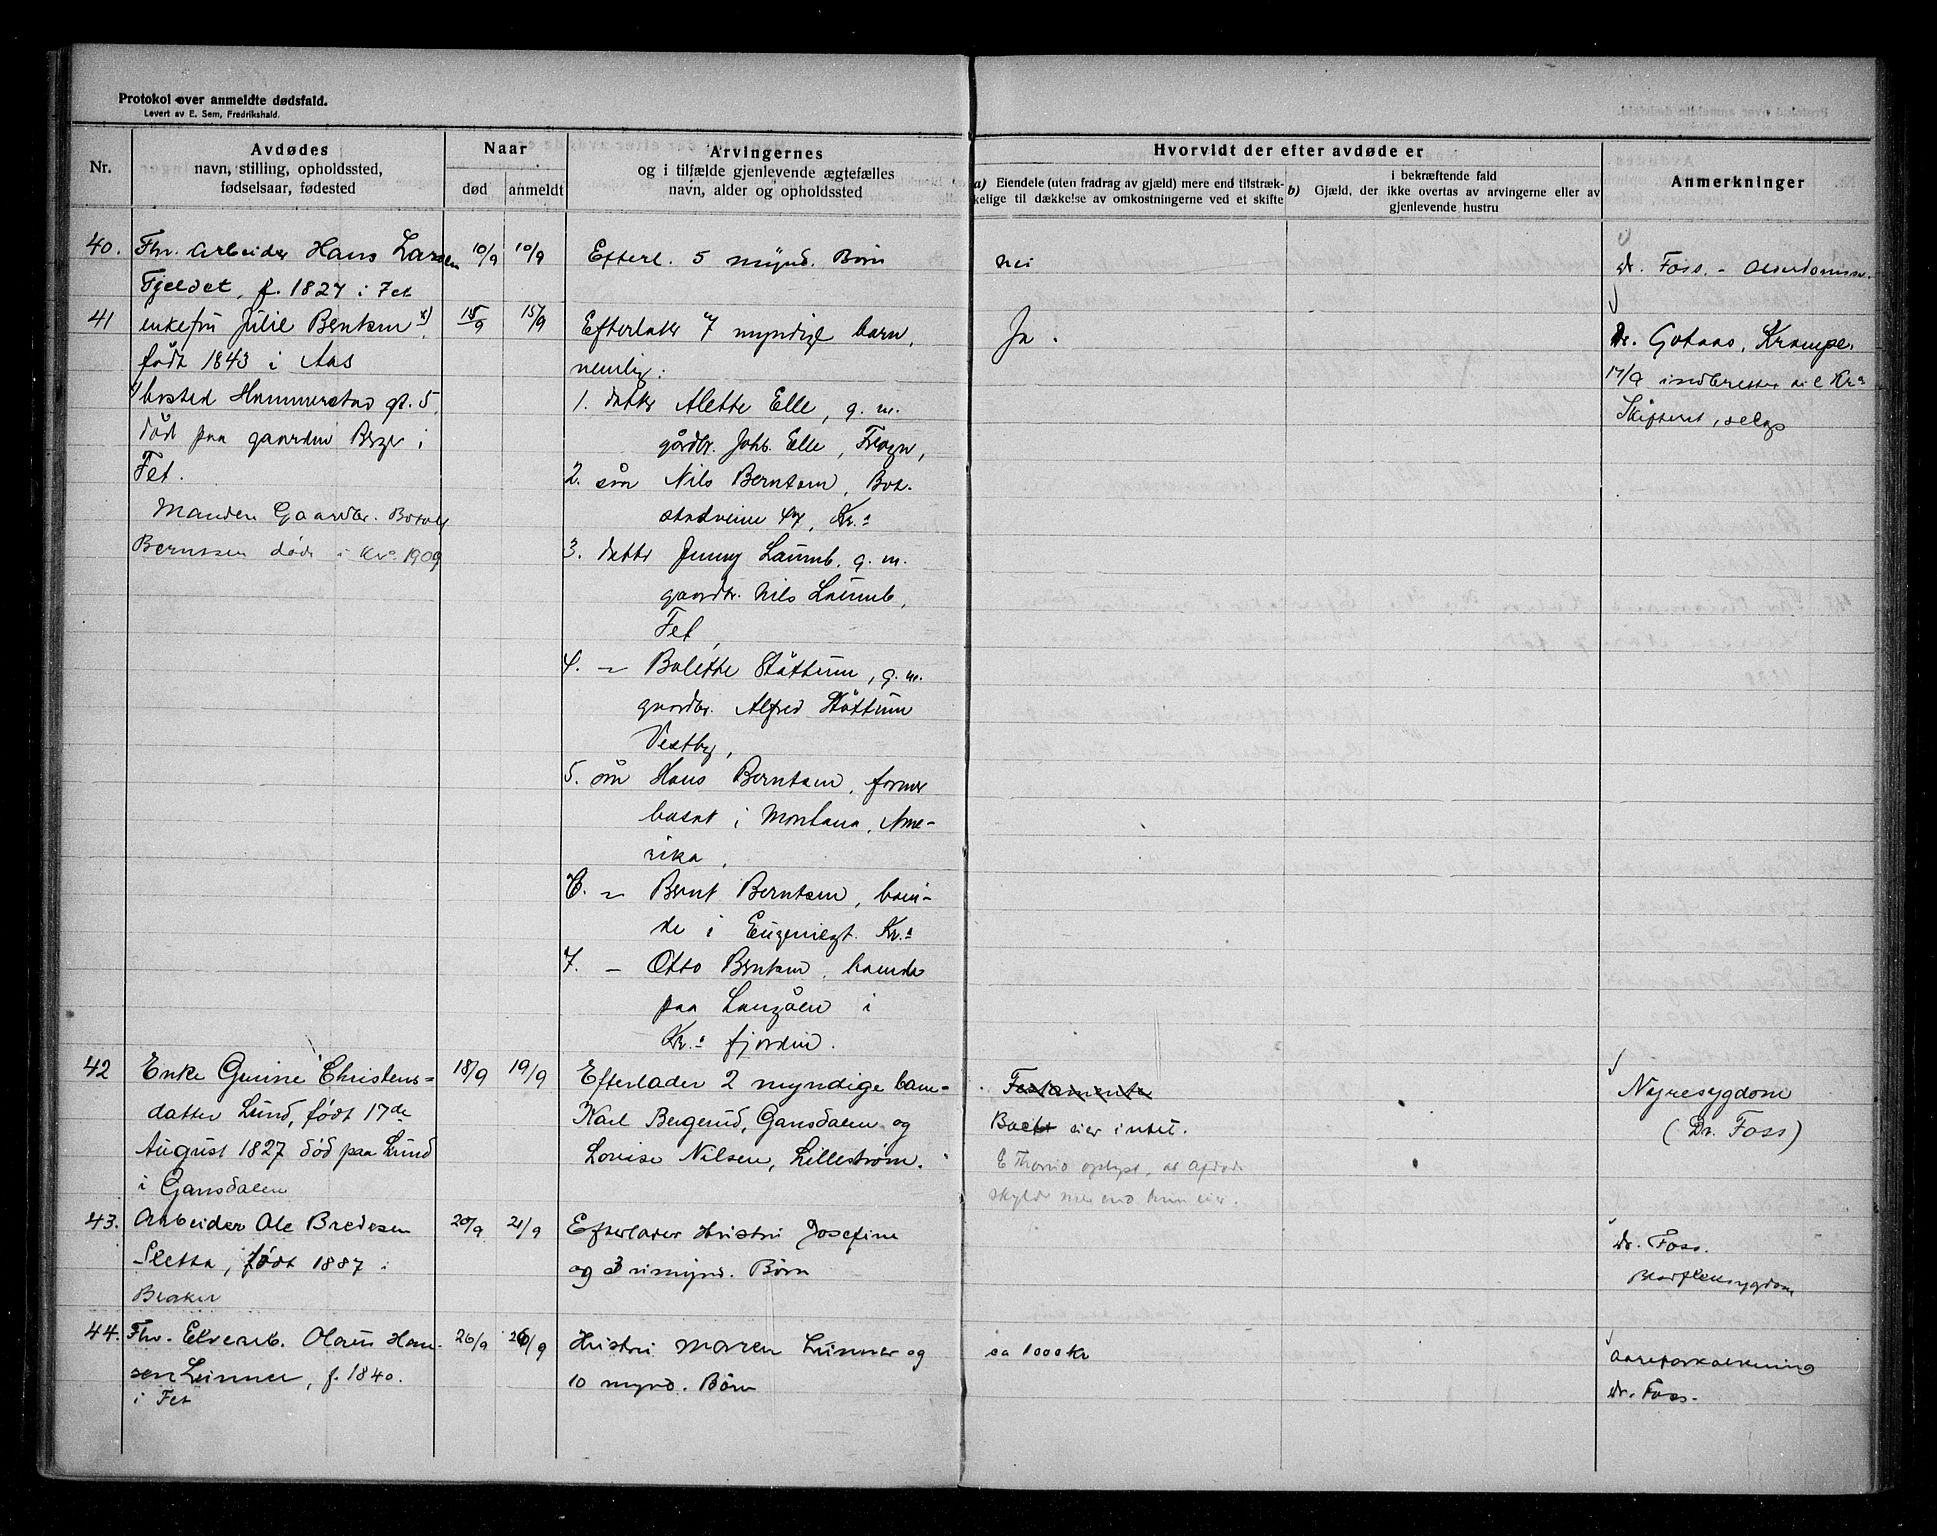 Protokol over anmeldte dødsfald.
Levert av E. Sem, Fredrikshald.
Nr.
Avdødes
navn, stilling, opholdssted,
fødselsaar, fødested
Naar
død
anmeldt
Arvingernes
og i tilfælde gjenlevende ægtefælles
navn, alder og opholdssted
Hvorvidt der efter avdøde er
a) Eiendele (uten fradrag av gjæld) mere end tilstræk-
kelige til dækkelse av omkostningerne ved et skifte
b) Gjæld, der
i bekræftende fald
ikke overtas av arvingerne eller av
gjenlevende hustru
Anmerkninger
40.
Fhv. Arbeider Hans Larsen
Fjeldet, f. 1827 i Fet
10/9
10/9
Efterl. 5 mynd. Børn
nei
Dr. Foss. -
41
enkefru Julie Berntsen x)
født 1843 i Aas
x) bosted Hammerstad gt. 5,
død paa gaarden Berger i
Fet.
Manden Gaardbr. Botolf
Bernssen døde i Kr.a 1909
15/9
15/9
Efterlater 7 myndige barn,
nemlig:
1. datter Alette Elle, g. m.
gårdbr. Johs. Elle, Frogn,
2. søn Nils Berntsen, Bot-
stadveien 47, Kr.a
3. datter Jenny Laumb, g. m.
gaardbr. Nils Laumb,
Fet,
4. - Bolette Støttum, g. m.
gaardbr. Alfred Støttum
Vestby,
5. søn Hans Berntsen, farmer
bosat i Montana, Ame-
rika,
6. - Bernt Berntsen, boen-
de i Eugeniegt. Kr.a
7. - Otto Berntsen, boende
paa Langåen i
Kr.a fjorden.
Ja.
Dr. Gotaas, Krampe.
17/9 indberettet til Kr.a
Skifteret,
42
Enke Gunne Christens-
datter Lund, født 17de
August 1827 død paa Lund
i Gansdalen
18/9
19/9
Efterlader 2 myndige barn-
Karl Bergerud, Gansdalen og
Lovise Nilsen, Lillestrøm.
Testamente
Boet eier intet.
E Thorud oplyst, at Afdøde
skylder mer end hun eier.
Nyresygdom
(Dr. Foss)
43.
Arbeider Ole Bredesen
Sletta, født 1887 i
Brøker
20/9
21/9
Efterlader Hustru Josefine
og 3 umynd. Børn
Dr. Foss.
44.
Fhv. Elvearb. Olaus Han-
sen Lunner, f. 1840.
i Fet
26/9
26/9
Hustru Maren Lunner og
10 mynd. Børn
ca 1000 kr
Aareforkalkning
Dr. Foss.